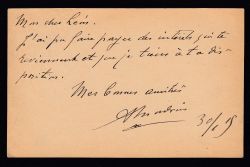 Mon cher Léon.
J'ai pu faire payer des intérêts qui te
reviennent et que je tiens à ta dis-
position.
Mes bonnes amitiés
30/